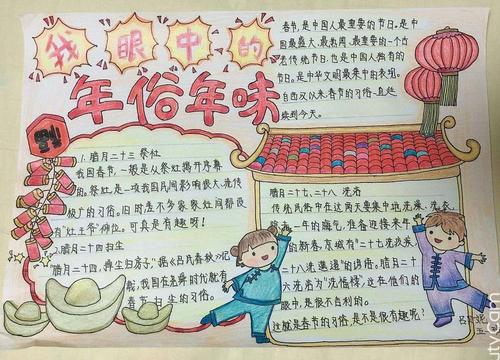 我眼中的
年俗年味
春节,是中国人最重要的节日。是中
国最盛大、最热闹、最重要的一个古
老传统节日,也是中国人独有的
节日。是中华文明最集中的表现。
自西汉以来,春节的习俗一直延
续到今天。
福
1.腊月二十三 祭灶
我国春节,一般是从祭灶揭开序幕
的。祭灶,是一项我国民间影响很大、流传
极广的习俗。旧时差不多家家灶间都设
有“灶王爷”神位。可真是有趣呀!
2.腊月二十四 扫尘
腊月二十四,掸尘扫房子”据《吕氏春秋》记
载,我国在尧舜时代就有
春节扫尘的习俗。
腊月二十七、二十八 洗浴
传统民俗中在这两天要集中地洗澡、洗衣,
一年的晦气,准备迎接来年
的新春,京城有“二十七洗疚疾,
二十八洗邋遢”的谚语。腊月二十
六洗浴为“洗福禄”
眼中,是很不吉利的。
这就是春节的习俗,是不是很有趣呢?